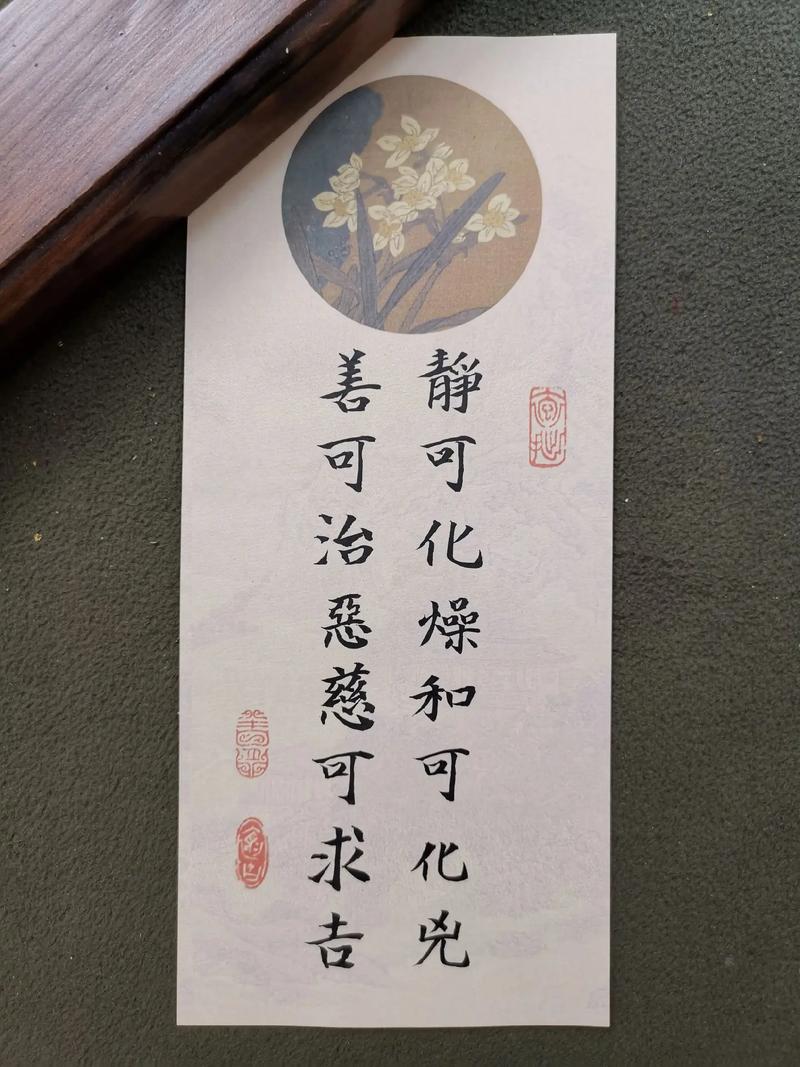 靜可化燥和可化兇
善可治惡慈可求吉